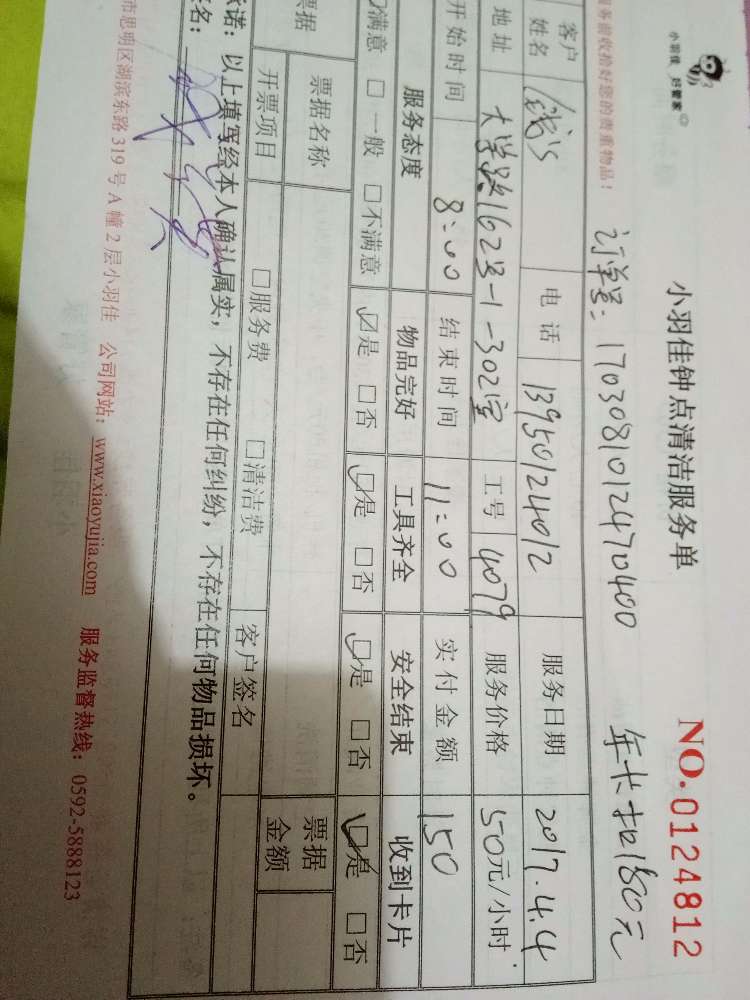 小羽佳 好管家
小羽佳钟点清洁服务单
NO.0124812
务前收拾好您的贵重物品！
订单号：1703081012470400 年卡扣180元
客户姓名 电话 13950124012 服务日期 2017.4.4
地址 大学路162号-1-302室 工号 4079 服务价格 50元/小时
开始时间 8:00 结束时间 11:00 实付金额 150
服务态度 物品完好 工具齐全 安全结束 收到卡片
☑满意 □一般 □不满意 ☑是 □否 ☑是 □否 ☑是 □否 ☑是 □否
票据 票据名称 票据金额
开票项目 □服务费 □清洁费 客户签名
承诺：以上填写经本人确认属实，不存在任何纠纷，不存在任何物品损坏。
签名：
市思明区湖滨东路319号A幢2层小羽佳 公司网站：www.xiaoyujia.com 服务监督热线：0592-5888123